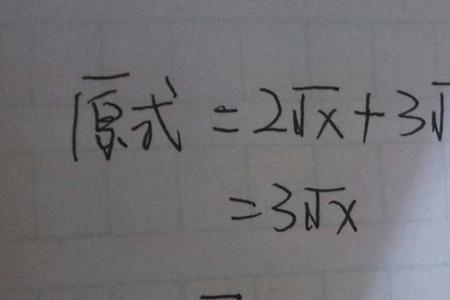 原式=2√x+3√
=3√x